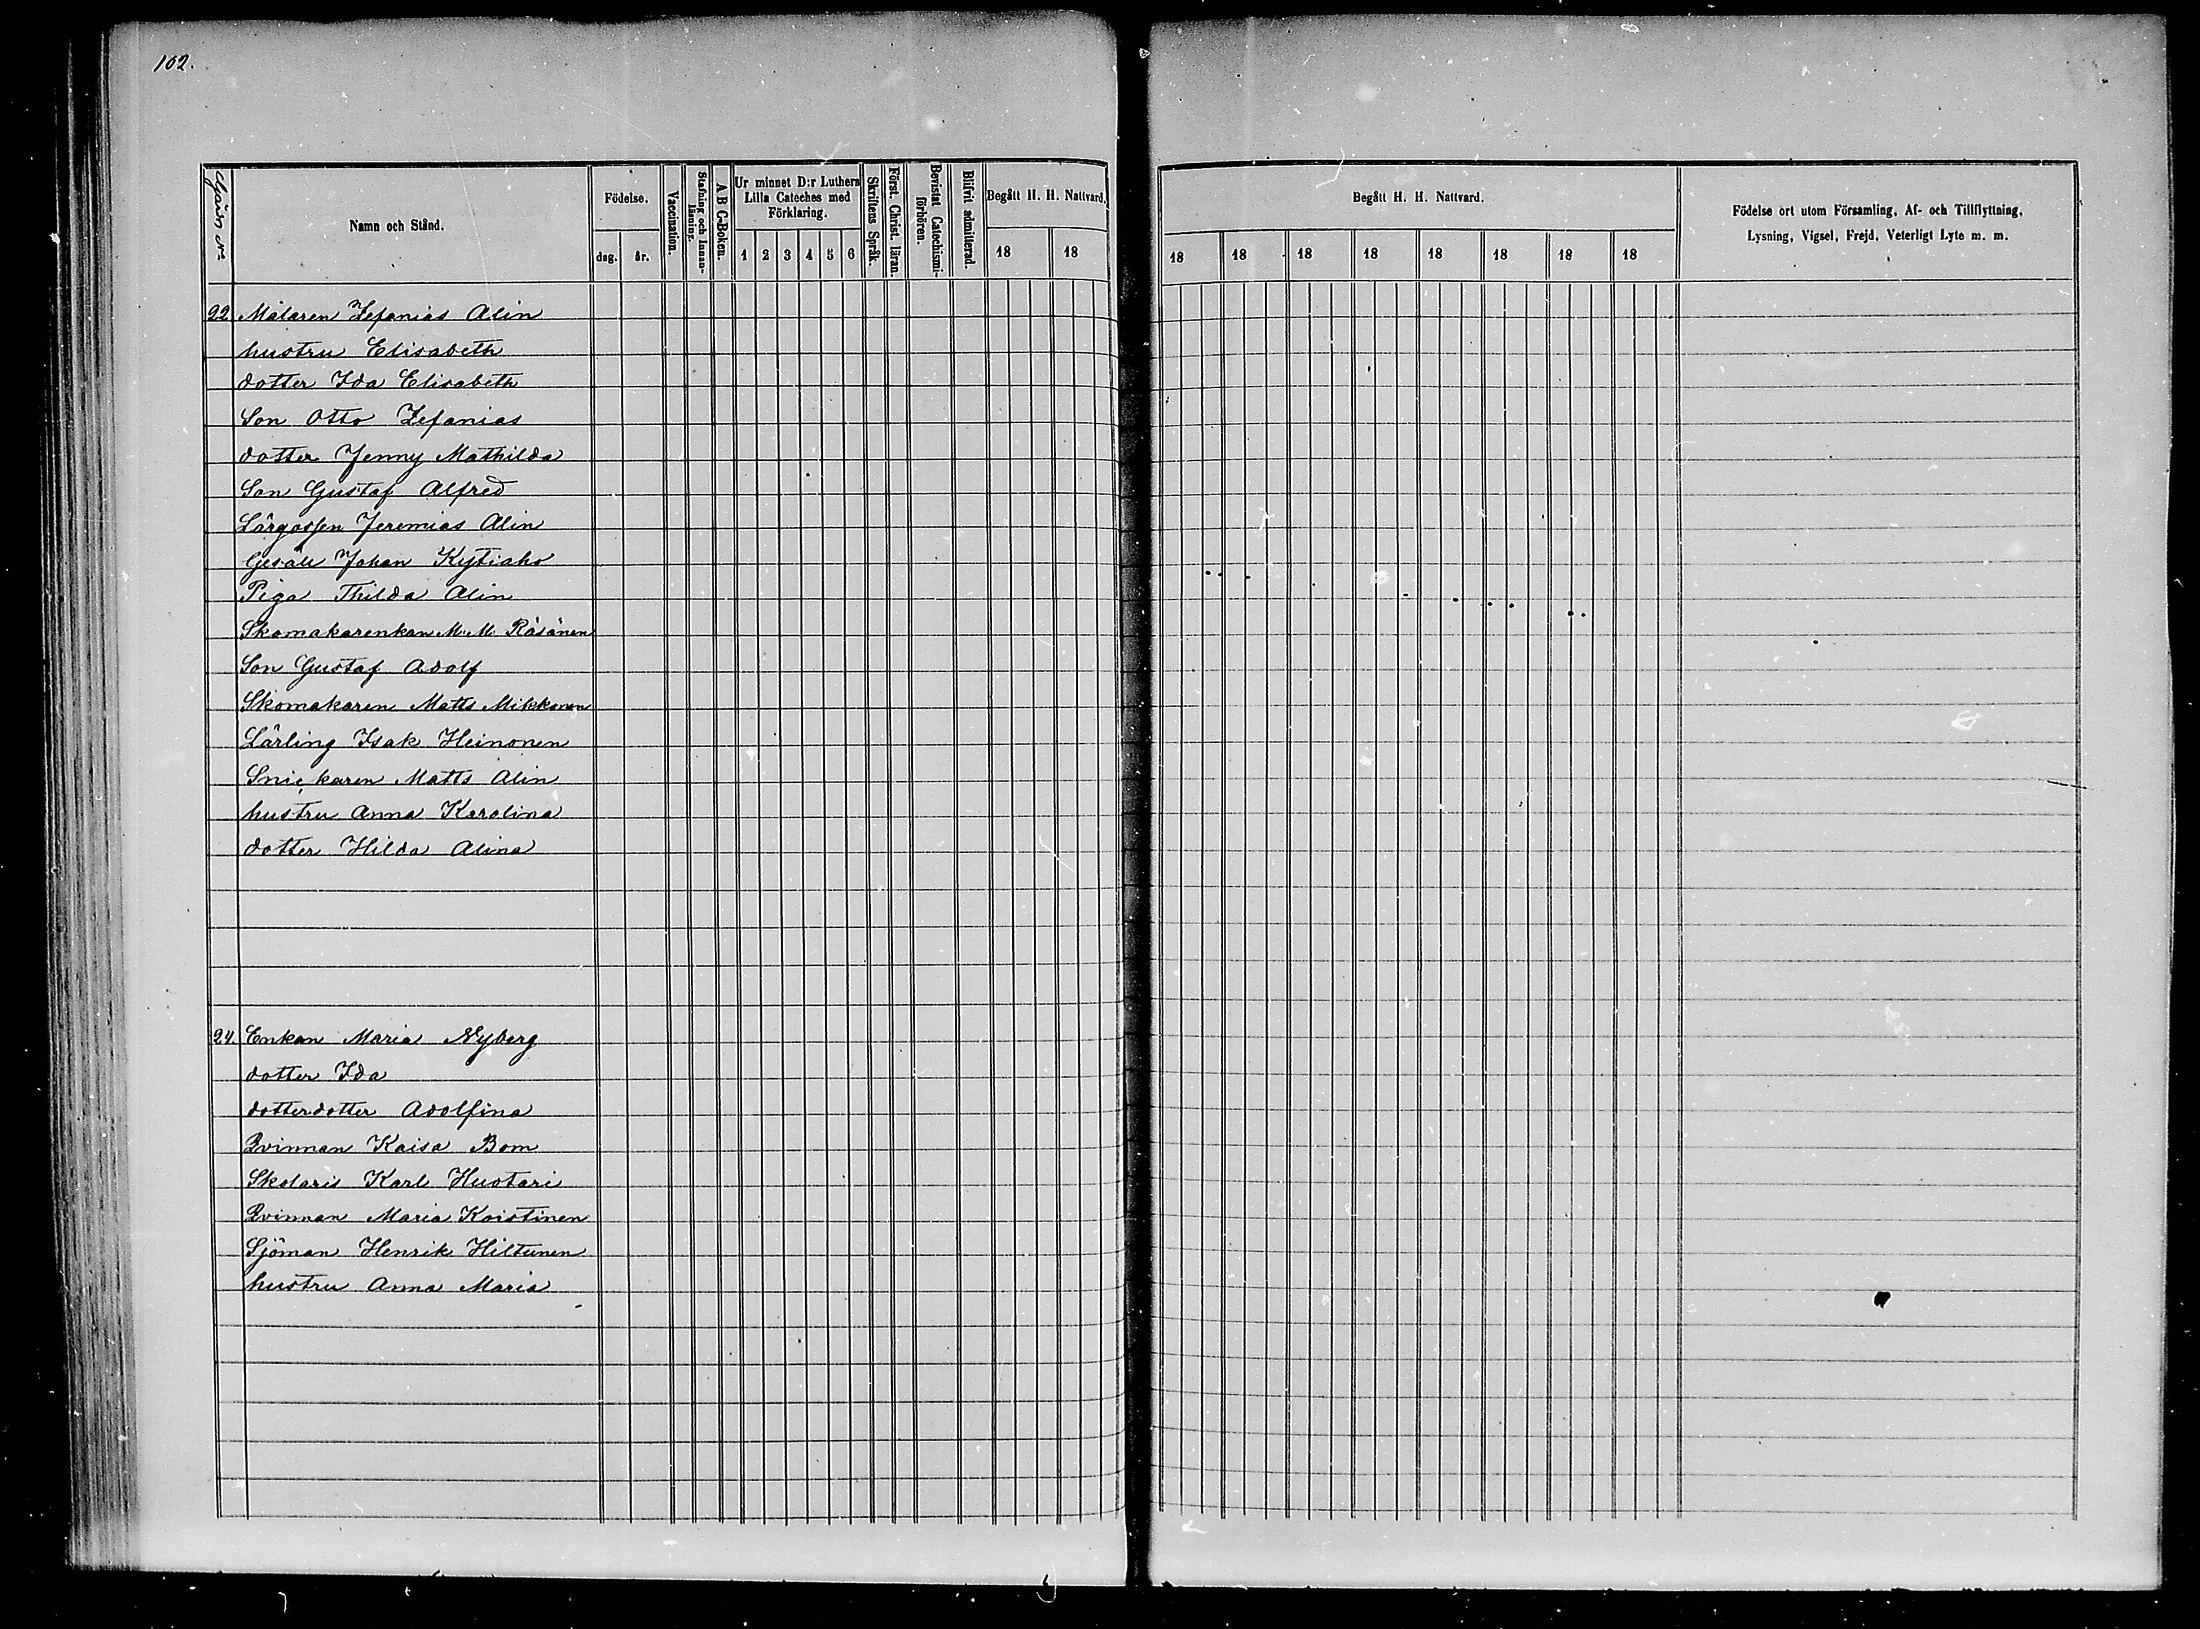 102.
Gård No
Namn och Stånd.
Födelse.
dag.
år.
Vaccination.
Stafning och Innan-
läsning.
A B C-Boken.
Ur minnet D:r Luthers
Lilla Cateches med
Förklaring.
1 2 3 4 5 6
Skriftens Språk.
Först. Christ. läran.
Bevistat Catechismi-
förhören.
Blifvit admitterad.
Begått H. H. Nattvard.
18 18
Begått H. H. Nattvard.
18 18 18 18 18 18 18 18
Födelse ort utom Församling, Af- och Tillflyttning,
Lysning, Vigsel, Frejd, Veterligt Lyte m. m.
22 Målaren Zefanias Alin
hustru Elisabeth
dotter Ida Elisabeth
Son Otto Zefanias
dotter Jenny Mathilda
Son Gustaf Alfred
Lärgossen Jeremias Alin
Gesäll Johan Kytiaho
Piga Thilda Alin
Skomakarenkan M. M. Räsänen
Son Gustaf Adolf
Skomakaren Matts Mikkonen
Lärling Isak Heinonen
Snickaren Matts Alin
hustru Anna Karolina
dotter Hilda Alina
24. Enkan Maria Nyberg
dotter Ida
dotterdotter Adolfina
Qvinnan Kaisa Bom
Skolaris Karl Huotari
Qvinnan Maria Koistinen
Sjöman Henrik Hiltunen
hustru Anna Maria